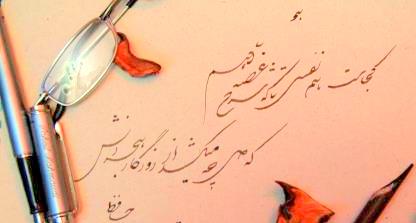 هو
کجاست هم نفسی تا که شرح غصه دهم
که دل چه میکشد از روزگار هجرانش
حافظ